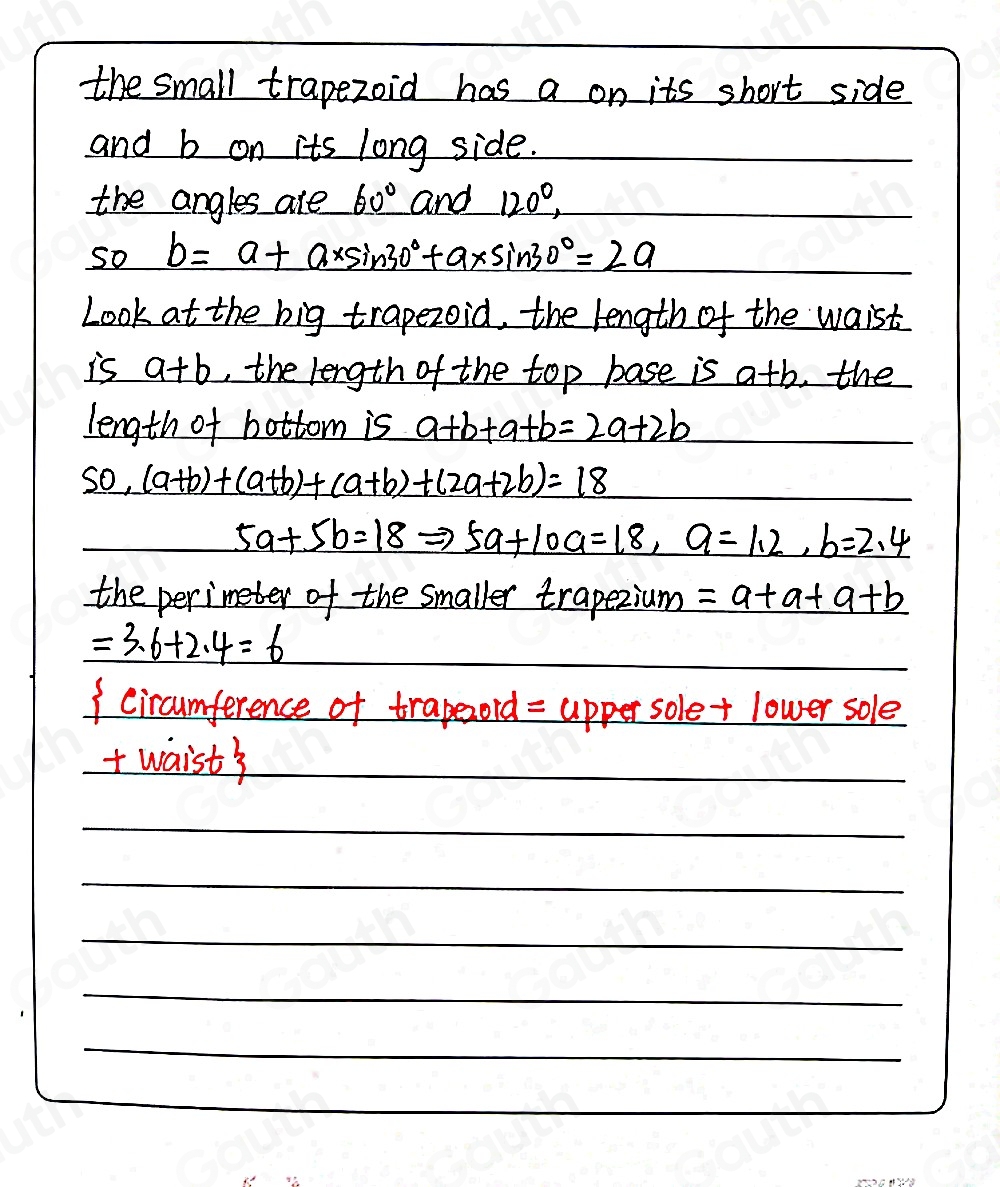 the small trapezoid has a on its short side
and b on its long side.
the angles are 60° and 120°,
so b= a+ a×sin30°+a×sin30°=2a
Look at the big trapezoid, the length of the waist
is a+b, the length of the top base is a+b, the
length of bottom is a+b+a+b=2a+2b
so, (a+b)+(a+b)+(a+b)+(2a+2b)=18
5a+5b=18⇒5a+10a=18, a=1.2, b=2.4
the perimeter of the smaller trapezium = a+a+a+b
=3.6+2.4=6
{ Circumference of trapezoid = upper sole + lower sole
+ waist}
Gauth